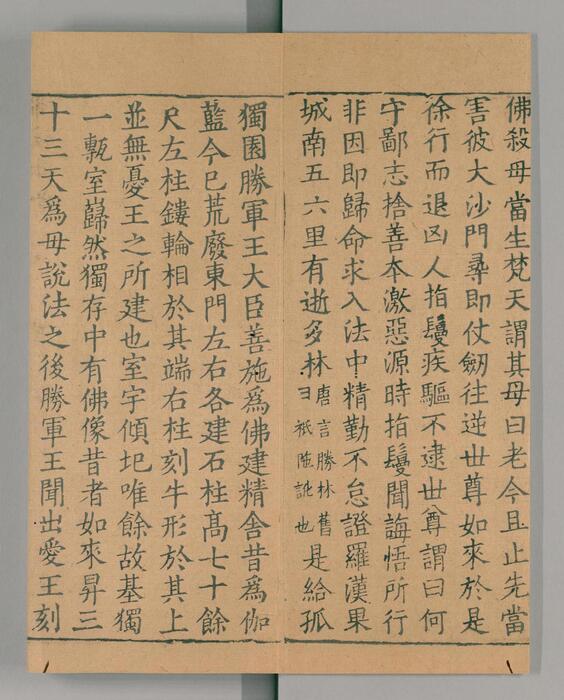 佛殺母當生梵天謂其母曰老今且止先當
害彼大沙門尋即仗劒往逆世尊如來於是
徐行而退凶人指鬘疾驅不逮世尊謂曰何
守鄙志捨善本激惡源時指鬘聞誨悟所行
非因即歸命求入法中精勤不怠證羅漢果
城南五六里有逝多林唐言勝林舊曰祇陁訛也是給孤
獨園勝軍王大臣善施爲佛建精舍昔爲伽
藍今已荒廢東門左右各建石柱髙七十餘
尺左柱鏤輪相於其端右柱刻牛形於其上
並無憂王之所建也室宇傾圮唯餘故基獨
一甎室巋然獨存中有佛像昔者如來昇三
十三天爲母說法之後勝軍王聞出愛王刻